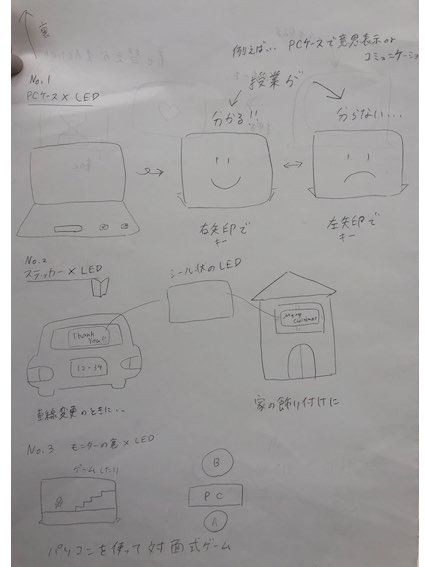 裏
例えば… PCケースで意思表示or
コミュニケーション
No.1
PCケース×LED
授業が
分かる!!
分からない…
右矢印で
キー
左矢印で
キー
No.2
ステッカー×LED
シール状のLED
Thank
You!!
12-34
Merry
Christmas
車線変更のときに…
家の飾り付けに
No.3 モニターの裏×LED
ゲームしたり
B
PC
A
パソコンを使って対面式ゲーム